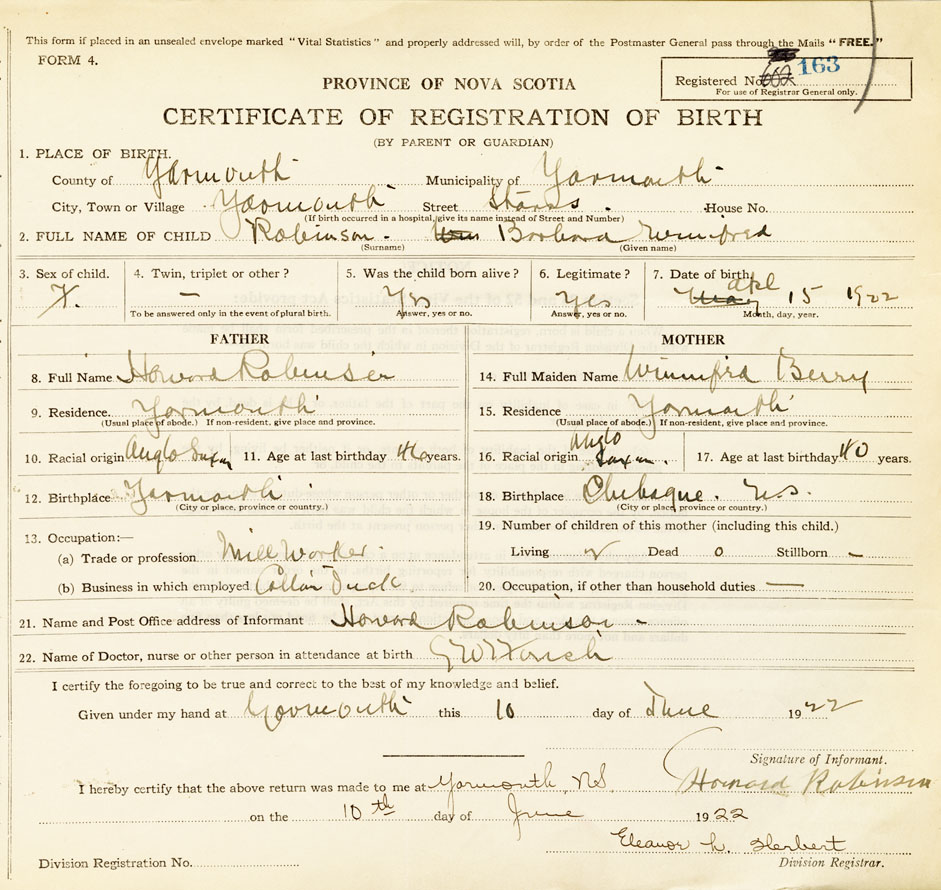 This form if placed in an unsealed envelope marked "Vital Statistics" and properly addressed will, by order of the Postmaster General pass through the Mails "FREE."
FORM 4.
Registered No. 163
For use of Registrar General only.
PROVINCE OF NOVA SCOTIA
CERTIFICATE OF REGISTRATION OF BIRTH
(BY PARENT OR GUARDIAN)
1. PLACE OF BIRTH.
County of Yarmouth Municipality of Yarmouth
City, Town or Village Yarmouth Street Starrs. House No.
(If birth occurred in a hospital, give its name instead of Street and Number)
2. FULL NAME OF CHILD Robinson. Barbara Winifred
(Surname) (Given name)
3. Sex of child. 4. Twin, triplet or other? 5. Was the child born alive? 6. Legitimate? 7. Date of birth
F. — Yes Yes May 15 1922
To be answered only in the event of plural birth. Answer, yes or no. Answer, yes or no. Month, day, year.
FATHER MOTHER
8. Full Name Howard Robinson 14. Full Maiden Name Winnifrd Berry
9. Residence. Yarmouth 15. Residence Yarmouth
(Usual place of abode.) If non-resident, give place and province. (Usual place of abode.) If non-resident, give place and province.
10. Racial origin Anglo Saxon 11. Age at last birthday years. 16. Racial origin Anglo Saxon. 17. Age at last birthday 40 years.
12. Birthplace Yarmouth 18. Birthplace Chebogue. N.S.
(City or place, province or country.) (City or place, province or country.)
13. Occupation:— 19. Number of children of this mother (including this child.)
(a) Trade or profession Mill Worker. Living Dead 0 Stillborn —
(b) Business in which employed Cotton Duck 20. Occupation, if other than household duties —
21. Name and Post Office address of Informant Howard Robinson -
22. Name of Doctor, nurse or other person in attendance at birth
I certify the foregoing to be true and correct to the best of my knowledge and belief.
Given under my hand at Yarmouth this 10 day of June 1922
Signature of Informant.
I hereby certify that the above return was made to me at Yarmouth, N.S. Howard Robinson
on the 10th day of June 1922
Eleanor L. Herbert
Division Registration No. Division Registrar.